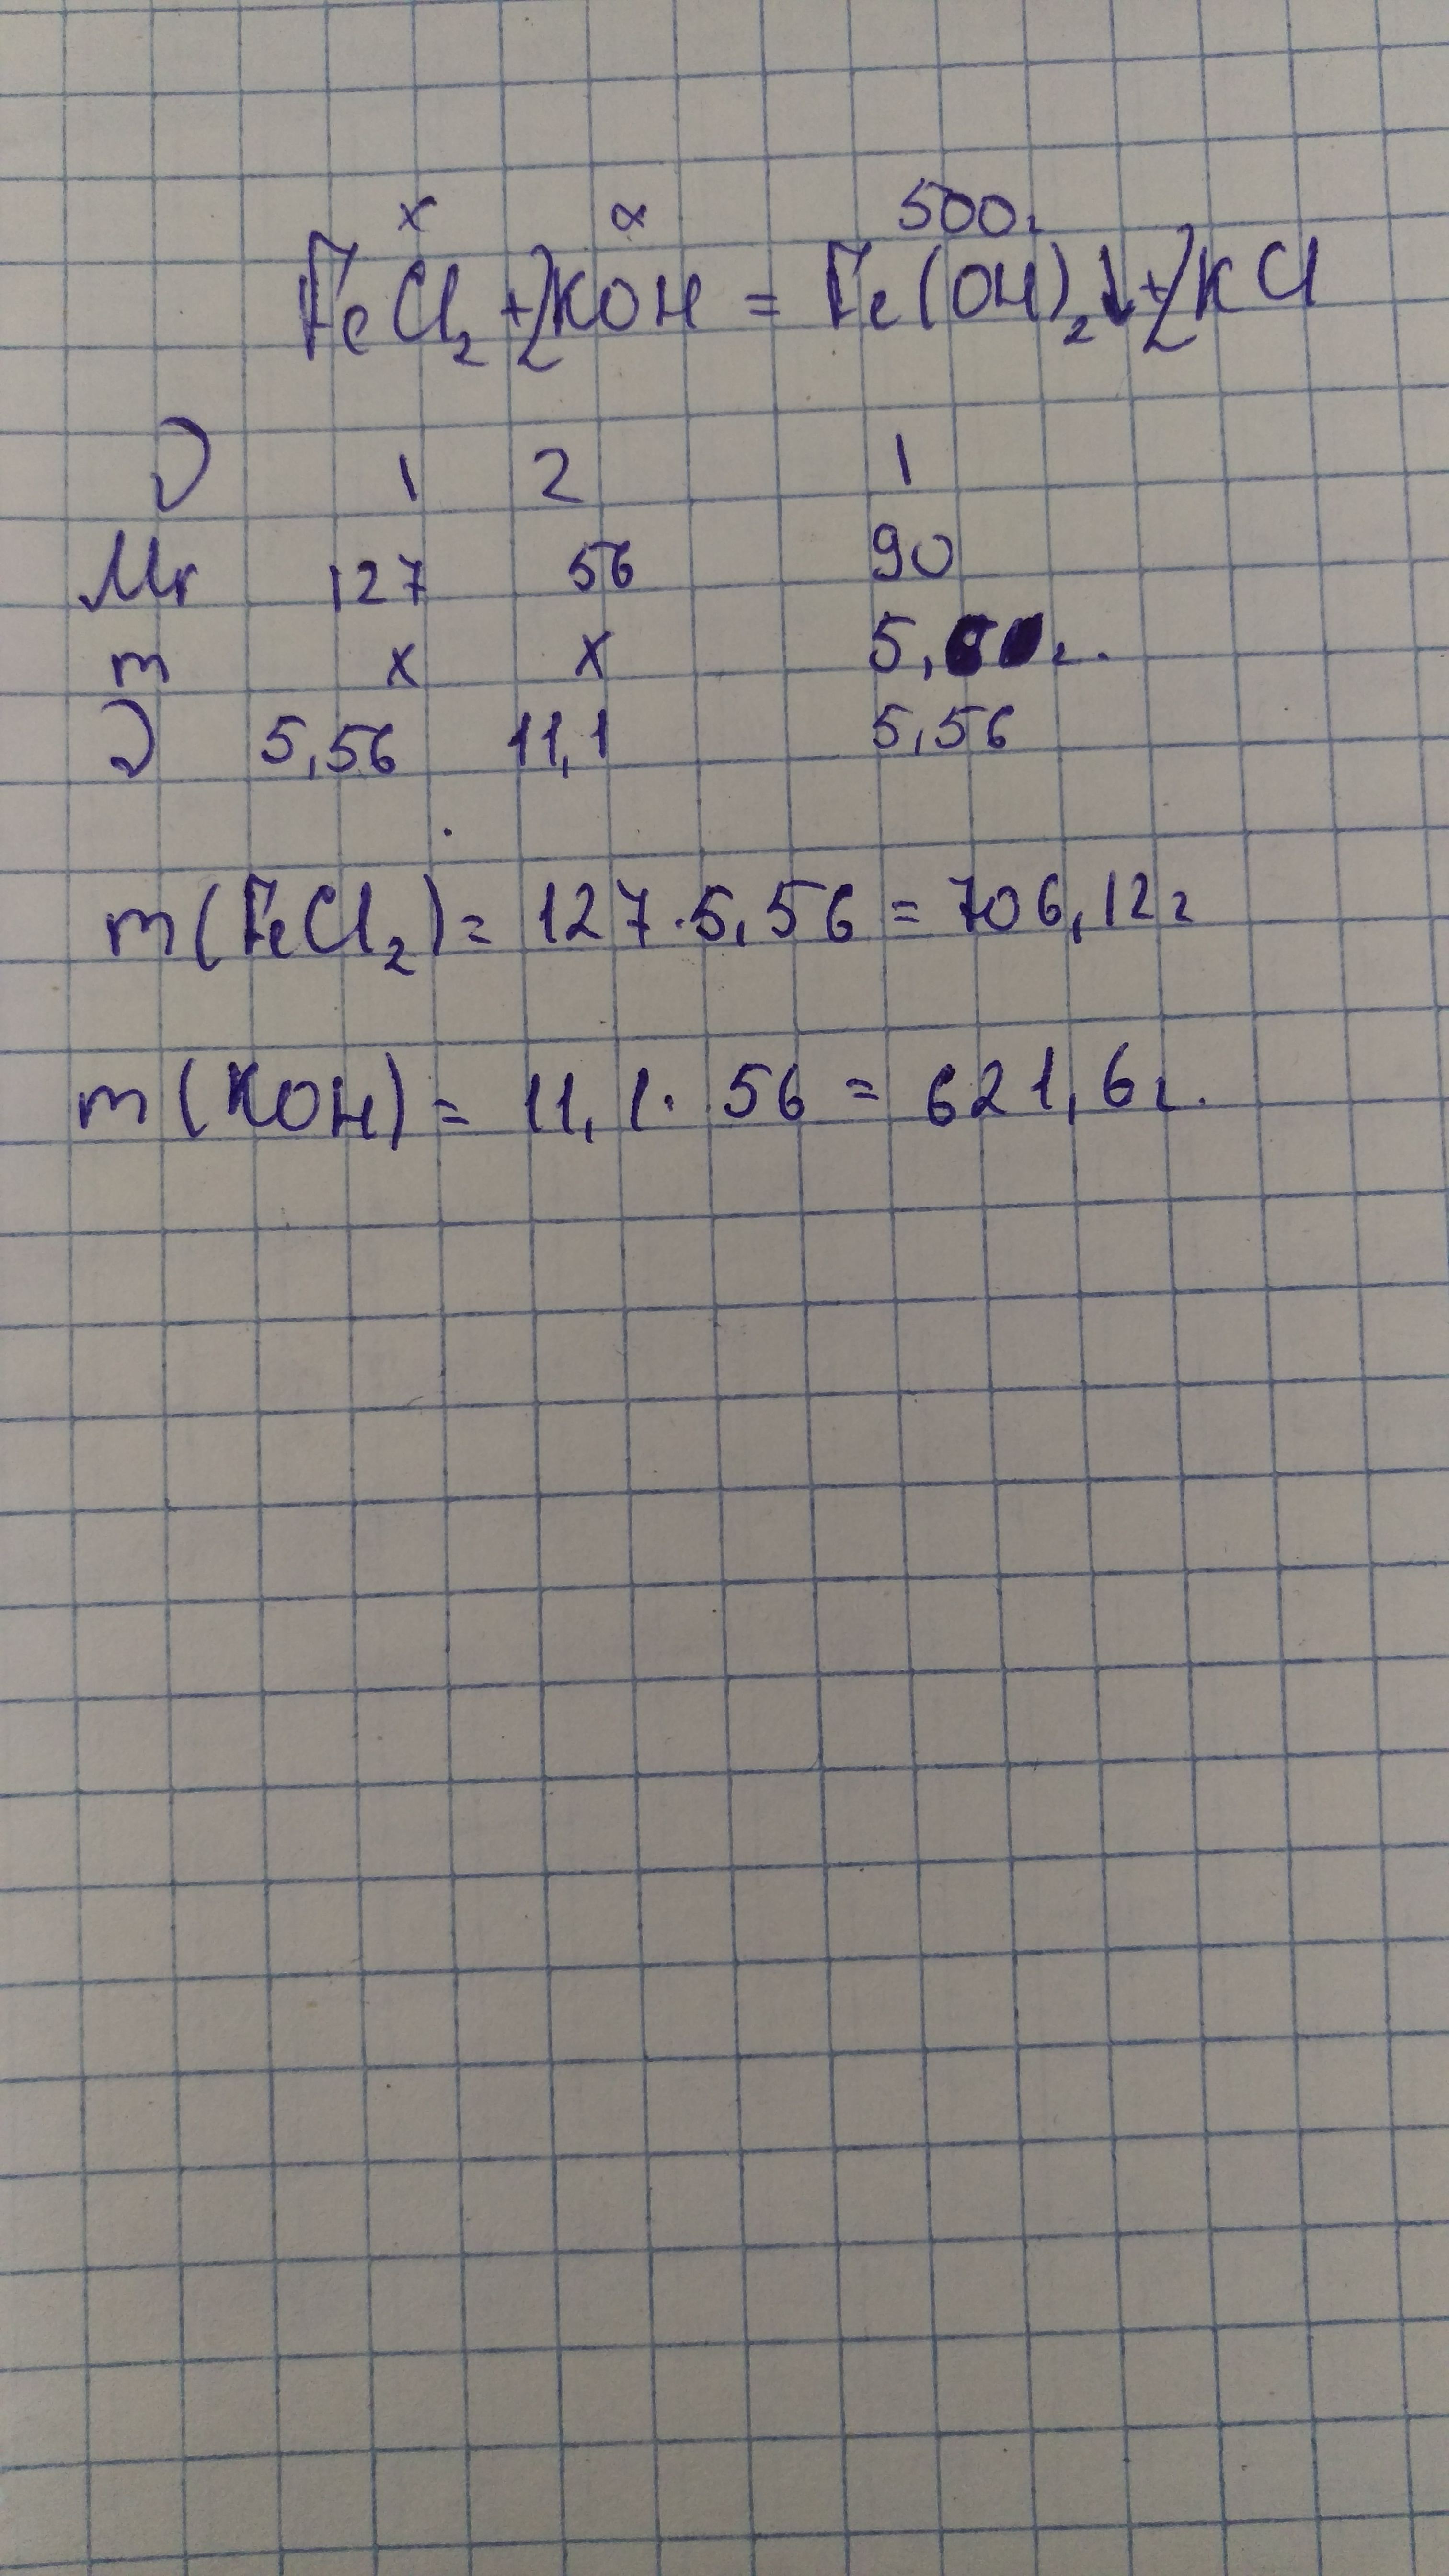 x α 500г
FeCl₂ + 2KOH = Fe(OH)₂↓ + 2KCl
ν 1 2 1
Mr 127 56 90
m x x 5, г.
ν 5,56 11,1 5,56
m(FeCl₂) = 127·5,56 = 706,12г
m(KOH) = 11,1·56 = 621,6г.